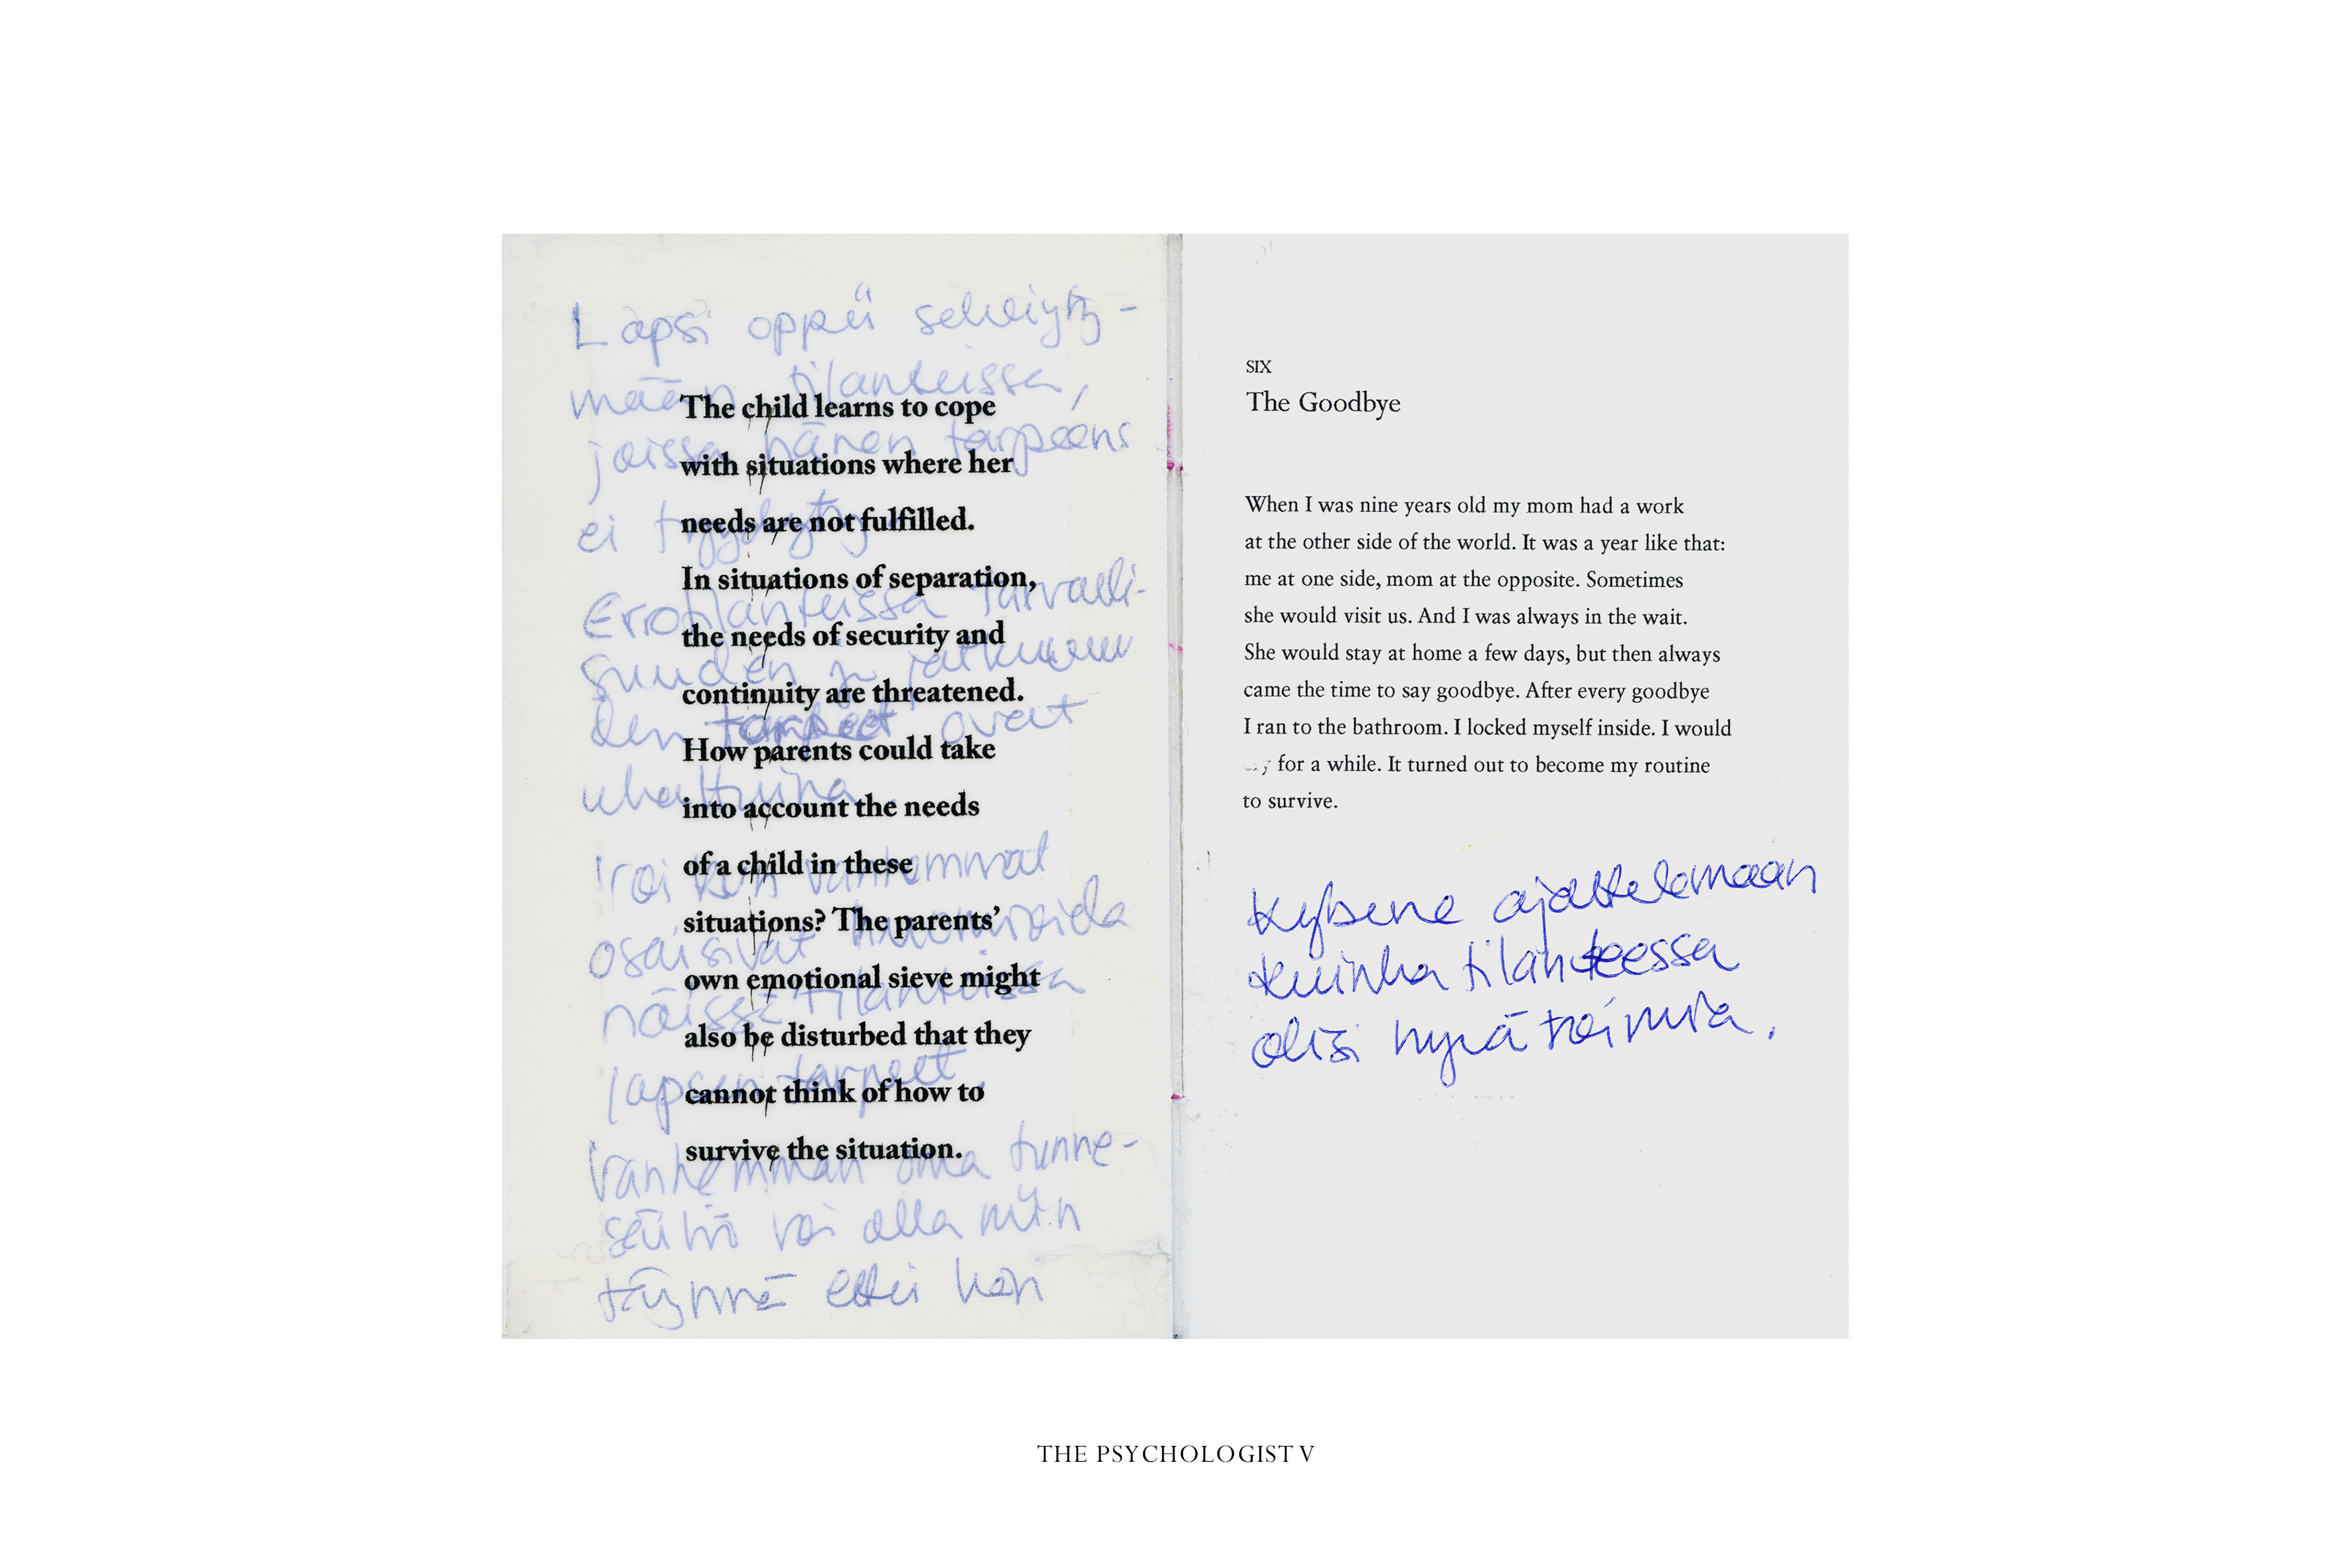 Lapsi oppii selviyty-
mään tilanteissa,
joissa hänen tarpeens
ei tyydyty.
Erotilanteissa turvalli-
suuden ja jatkuvuu
den tarpeet ovat
uhattuina.
Voi kun vanhemmat
osaisivat huomioida
näissä tilanteissa
lapsen tarpeet.
Vanhemman oma tunne-
säiliö voi olla niin
täynnä ettei hän
The child learns to cope
with situations where her
needs are not fulfilled.
In situations of separation,
the needs of security and
continuity are threatened.
How parents could take
into account the needs
of a child in these
situations? The parents’
own emotional sieve might
also be disturbed that they
cannot think of how to
survive the situation.
SIX
The Goodbye
When I was nine years old my mom had a work
at the other side of the world. It was a year like that:
me at one side, mom at the opposite. Sometimes
she would visit us. And I was always in the wait.
She would stay at home a few days, but then always
came the time to say goodbye. After every goodbye
I ran to the bathroom. I locked myself inside. I would
for a while. It turned out to become my routine
to survive.
kykene ajattelemaan
kuinka tilanteessa
olisi hyvä toimia.
THE PSYCHOLOGIST V